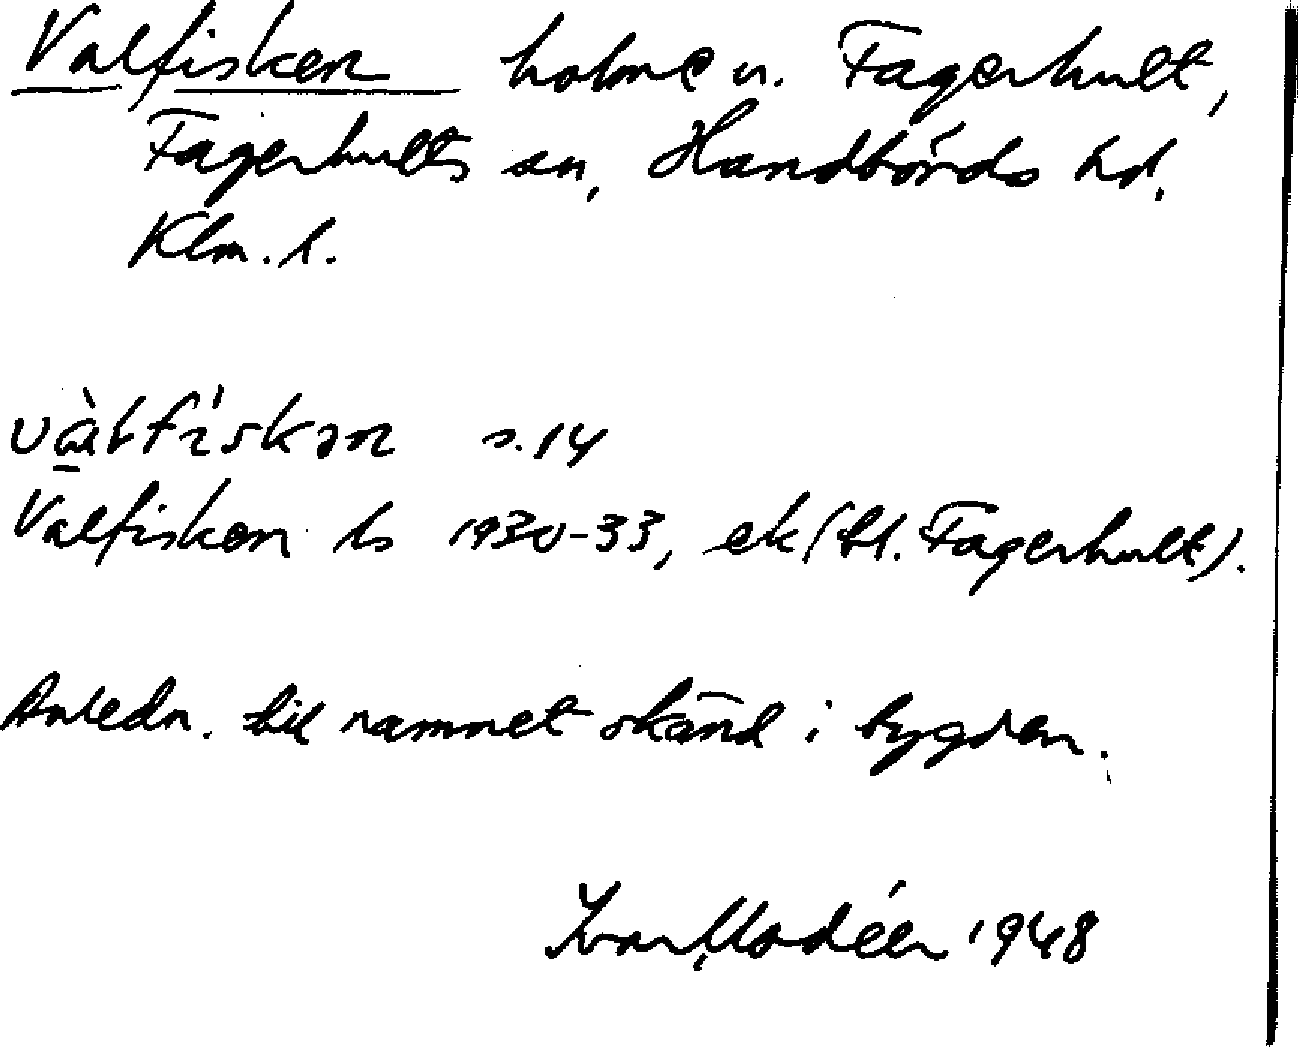 Valfisken holme n. Fagerhult,
Fagerhults sn, Handbörds hd.
Klm. l.
s. 14
Valfisken ls 1930-33, ek (bl. Fagerhult).
Anledn. till namnet okänd i bygden.
Ivar Modéer 1948